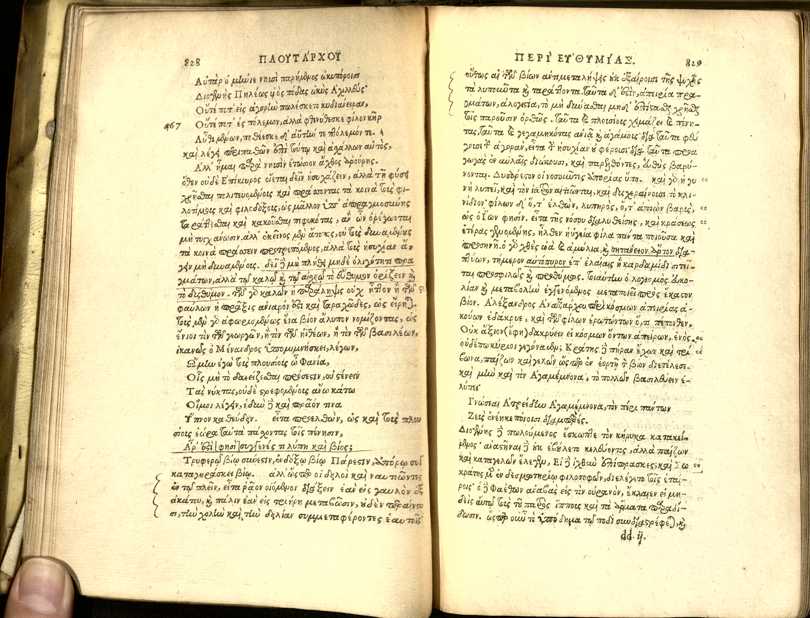 828 ΠΛΟΥΤΑΡΧΟΥ
Αὐτὰρ ὁ μήνιε νηυσὶ παρήμενος ὠκυπόροισι
Διογενὴς Πηλέως υἱὸς πόδας ὠκὺς Ἀχιλλεύς
Οὔτε ποτ' εἰς ἀγορὴν πωλέσκετο κυδιάνειραν,
467 Οὔτε ποτ' ἐς πόλεμον, ἀλλὰ φθινύθεσκε φίλον κῆρ
Αὖθι μένων, ποθέεσκε δ' ἀϋτήν τε πόλεμόν τε.
καὶ λέγει περιπαθῶν ἐπὶ τούτῳ καὶ ἀχάλλων αὐτός,
Ἀλλ' ἧμαι παρὰ νηυσὶν ἐτώσιον ἄχθος ἀρούρης.
ὅθεν οὐδὲ Ἐπίκουρος οἴεται δεῖν ἡσυχάζειν, ἀλλὰ τῇ φύσει
χρῆσθαι πολιτευομένους καὶ πράττοντας τὰ κοινὰ τοὺς φι-
λοτίμους καὶ φιλοδόξους, ὡς μᾶλλον ὑπ' ἀπραγμοσύνης
ταράττεσθαι καὶ κακοῦσθαι πεφυκότας, ἂν ὧν ὀρέγονται
μὴ τυγχάνωσιν. ἀλλ' ἐκεῖνος μὲν ἄτοπος, οὐ τοὺς δυναμένους
τὰ κοινὰ πράσσειν προτρεπόμενος, ἀλλὰ τοὺς ἡσυχίαν ἄ-
γειν μὴ δυναμένους. δεῖ δὲ μὴ πλήθει μηδὲ ὀλιγότητι πραγ-
μάτων, ἀλλὰ τῷ καλῷ καὶ τῷ αἰσχρῷ τὸ εὔθυμον ὁρίζειν καὶ
τὸ δύσθυμον. τῶν γὰρ καλῶν ἡ παράληψις οὐχ ἧττον ἢ τῶν
φαύλων ἡ πρᾶξις ἀνιαρόν ἐστι καὶ ταραχῶδες, ὡς εἴρηται.
τοὺς μὲν γὰρ ἀφωρισμένως ἕνα βίον ἄλυπον νομίζοντας, ὡς
ἔνιοι τὸν τῶν γεωργῶν, ἢ τὸν τῶν ἠϊθέων, ἢ τὸν τῶν βασιλέων,
ἱκανῶς ὁ Μένανδρος ὑπομιμνήσκει, λέγων,
ᾬμην ἐγὼ τοὺς πλουσίους ὦ Φανία,
Οἷς μὴ τὸ δανείζεσθαι πρόσεστιν, οὐ στένειν
Τὰς νύκτας, οὐδὲ στρεφομένους ἄνω κάτω
Οἴμοι λέγειν, ἡδὺν δὲ καὶ πρᾷόν τινα
Ὕπνον καθεύδειν. εἶτα προσελθών, ὡς καὶ τοὺς πλου-
σίους ὁρᾷ ταὐτὰ πάσχοντας τοῖς πένησιν,
Ἆρ' ἐστί (φησι) συγγενές τι λύπη καὶ βίος;
Τρυφερῷ βίῳ σύνεστιν, ἐνδόξῳ βίῳ Πάρεστιν, ἀπόρῳ συγ
καταγηράσκει βίῳ. ἀλλ' ὥσπερ οἱ δειλοὶ καὶ ναυτιῶντες
ἐν τῷ πλεῖν, εἶτα ῥᾷον οἰόμενοι διάξειν ἐὰν εἰς γαῦλον ἐξ
ἀκάτου, καὶ πάλιν ἐὰν εἰς τριήρη μεταβῶσιν, οὐδὲν περαίνου
σι, τὴν χολὴν καὶ τὴν δειλίαν συμμεταφέροντες ἑαυτοῖς
ΠΕΡΙ ΕΥΘΥΜΙΑΣ. 829
οὕτως αἱ τῶν βίων ἀντιμεταλήψεις οὐκ ἐξαιροῦσι τῆς ψυχῆς
τὰ λυποῦντα καὶ ταράττοντα. ταῦτα δ' ἐστίν, ἀπειρία πρα-
γμάτων, ἀλογιστία, τὸ μὴ δύνασθαι μηδ' ἐπίστασθαι χρῆσθαι
τοῖς παροῦσιν ὀρθῶς. ταῦτα καὶ πλουσίους χειμάζει καὶ πένη-
τας. ταῦτα καὶ γεγαμηκότας ἀνιᾷ καὶ ἀγάμους. διὰ ταῦτα φεύ
γουσι τὴν ἀγοράν, εἶτα τὴν ἡσυχίαν οὐ φέρουσι. διὰ ταῦτα προα
γωγὰς ἐν αὐλαῖς διώκουσι, καὶ παρελθόντες, εὐθὺς βαρύ-
νονται. Δυσάρεστον οἱ νοσοῦντες ἀπορίας ὕπο. καὶ γὰρ ἡ γυ
νὴ λυπεῖ, καὶ τὸν ἰατρὸν αἰτιῶνται, καὶ δυσχεραίνουσι τὸ κλι-
νίδιον. φίλων δ' ὅ,τ' ἐλθών, λυπηρός, ὅ,τ' ἀπιὼν βαρύς,
ὡς ὁ Ἴων φησίν. εἶτα τῆς νόσου διαλυθείσης, καὶ κράσεως
ἑτέρας γενομένης, ἦλθεν ὑγίεια φίλα πάντα ποιοῦσα καὶ
προσηνῆ. ὁ γὰρ χθὲς ᾠὰ καὶ ἀμύλια καὶ σητάνειον ἄρτον δια-
πτύων, τήμερον αὐτόπυρον ἐπ' ἐλαίαις ἢ καρδαμίδι σιτεῖ-
ται προσφιλῶς καὶ προθύμως. τοιαύτην ὁ λογισμὸς εὐκο-
λίαν καὶ μεταβολὴν ἐγγινόμενος μεταποιεῖ πρὸς ἕκαστον
βίον. Ἀλέξανδρος Ἀναξάρχου περὶ κόσμων ἀπειρίας ἀ-
κούων ἐδάκρυε, καὶ τῶν φίλων ἐρωτώντων ὅ,τι πέπονθεν.
Οὐκ ἄξιον (ἔφη) δακρύειν εἰ κόσμων ὄντων ἀπείρων, ἑνὸς
οὐδέπω κύριοι γεγόναμεν; Κράτης δὲ πήραν ἔχων καὶ τρί
βωνα, παίζων καὶ γελῶν ὥσπερ ἐν ἑορτῇ τῷ βίῳ διετέλεσε.
καὶ μὴν καὶ τὸν Ἀγαμέμνονα, τὸ πολλῶν βασιλεύειν ἐ-
λύπει
Γνώσεαι Ἀτρείδην Ἀγαμέμνονα, τὸν περὶ πάντων
Ζεὺς ἐνέηκε πόνοισι διαμπερές.
Διογένης δὲ πωλούμενος ἔσκωπτε τὸν κήρυκα κατακεί-
μενος. ἀναστῆναι δὲ οὐκ ἐβούλετο κελεύοντος, ἀλλὰ παίζων
καὶ καταγελῶν ἔλεγεν, Εἰ δὲ ἰχθῦν ἐπίπρασκες; καὶ Σω
κράτης μὲν ἐν δεσμωτηρίῳ φιλοσοφῶν, διελέγετο τοῖς ἑταί-
ροις. ὁ δὲ Φαέθων ἀναβὰς εἰς τὸν οὐρανόν, ἔκλαιεν εἰ μη-
δεὶς αὐτῷ τοὺς τοῦ πατρὸς ἵππους καὶ τὰ ἅρματα παραδί-
δωσιν. ὥσπερ οὖν τὸ ὑπόδημα τῷ ποδὶ συνδιαστρέφεται, καὶ
dd ij.